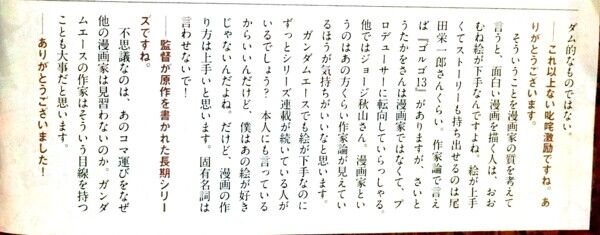 ダム的なものではない。
――これ以上ない叱咤激励ですね。あ
りがとうございます。
そういうことを漫画家の質を考えて
言うと、面白い漫画を描く人は、おお
むね絵が下手なんですよね。絵が上手
くてストーリーも持ち出せるのは尾
田栄一郎さんくらい。作家論で言え
ば『ゴルゴ13』がありますが、さいと
うたかをさんは漫画家ではなくて、プ
ロデューサーに転向していらっしゃる。
他ではジョージ秋山さん。漫画家とい
うのはあの方くらい作家論が見えてい
るほうが気持ちがいいなと思います。
ガンダムエースでも絵が下手なのに
ずっとシリーズ連載が続いている人が
いるでしょう？　本人にも言っている
からいいんだけど、僕はあの絵が好き
じゃないんだよね。だけど、漫画の作
り方は上手いと思います。固有名詞は
言わせないで！
――監督が原作を書かれた長期シリー
ズですね。
不思議なのは、あのコマ運びをなぜ
他の漫画家は見習わないのか。ガンダ
ムエースの作家はそういう目線を持つ
ことも大事だと思います。
――ありがとうございました！